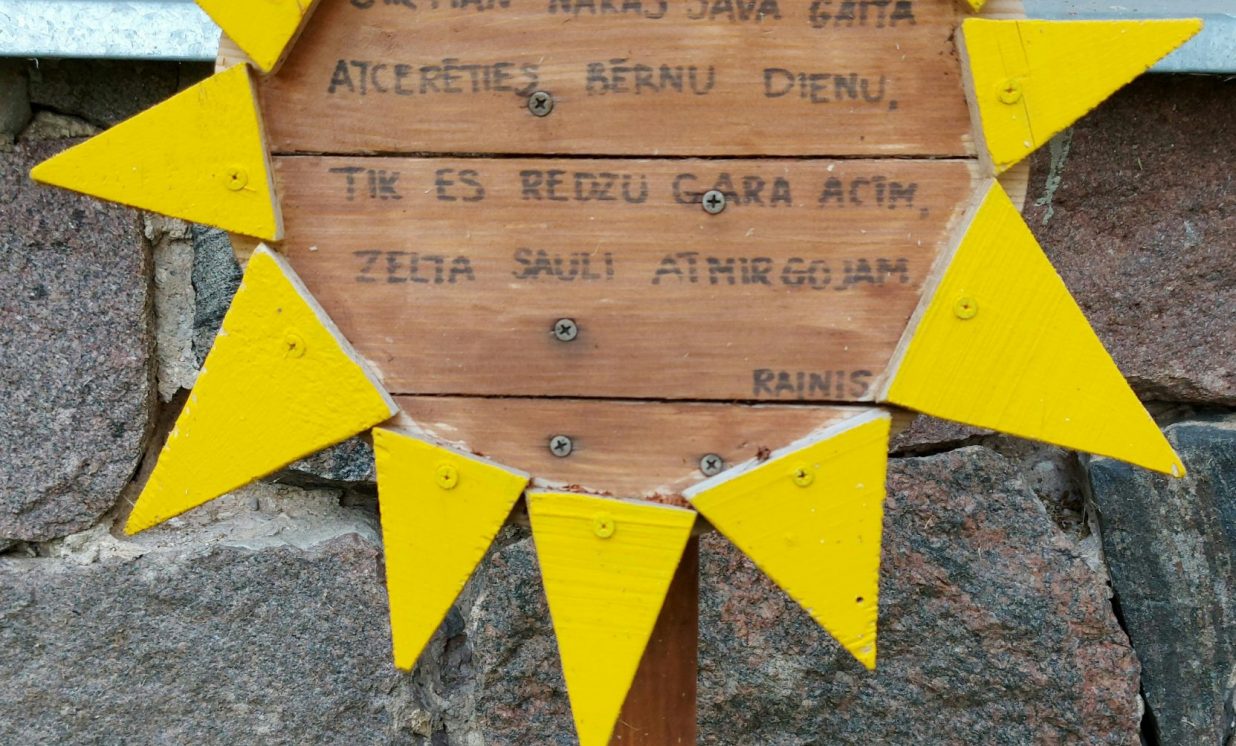 NĀKAS SAVĀ GAITĀ
ATCERĒTIES BĒRNU DIENU,
TIK ES REDZU GARA ACĪM,
ZELTA SAULI ATMIRGOJAM.
RAINIS